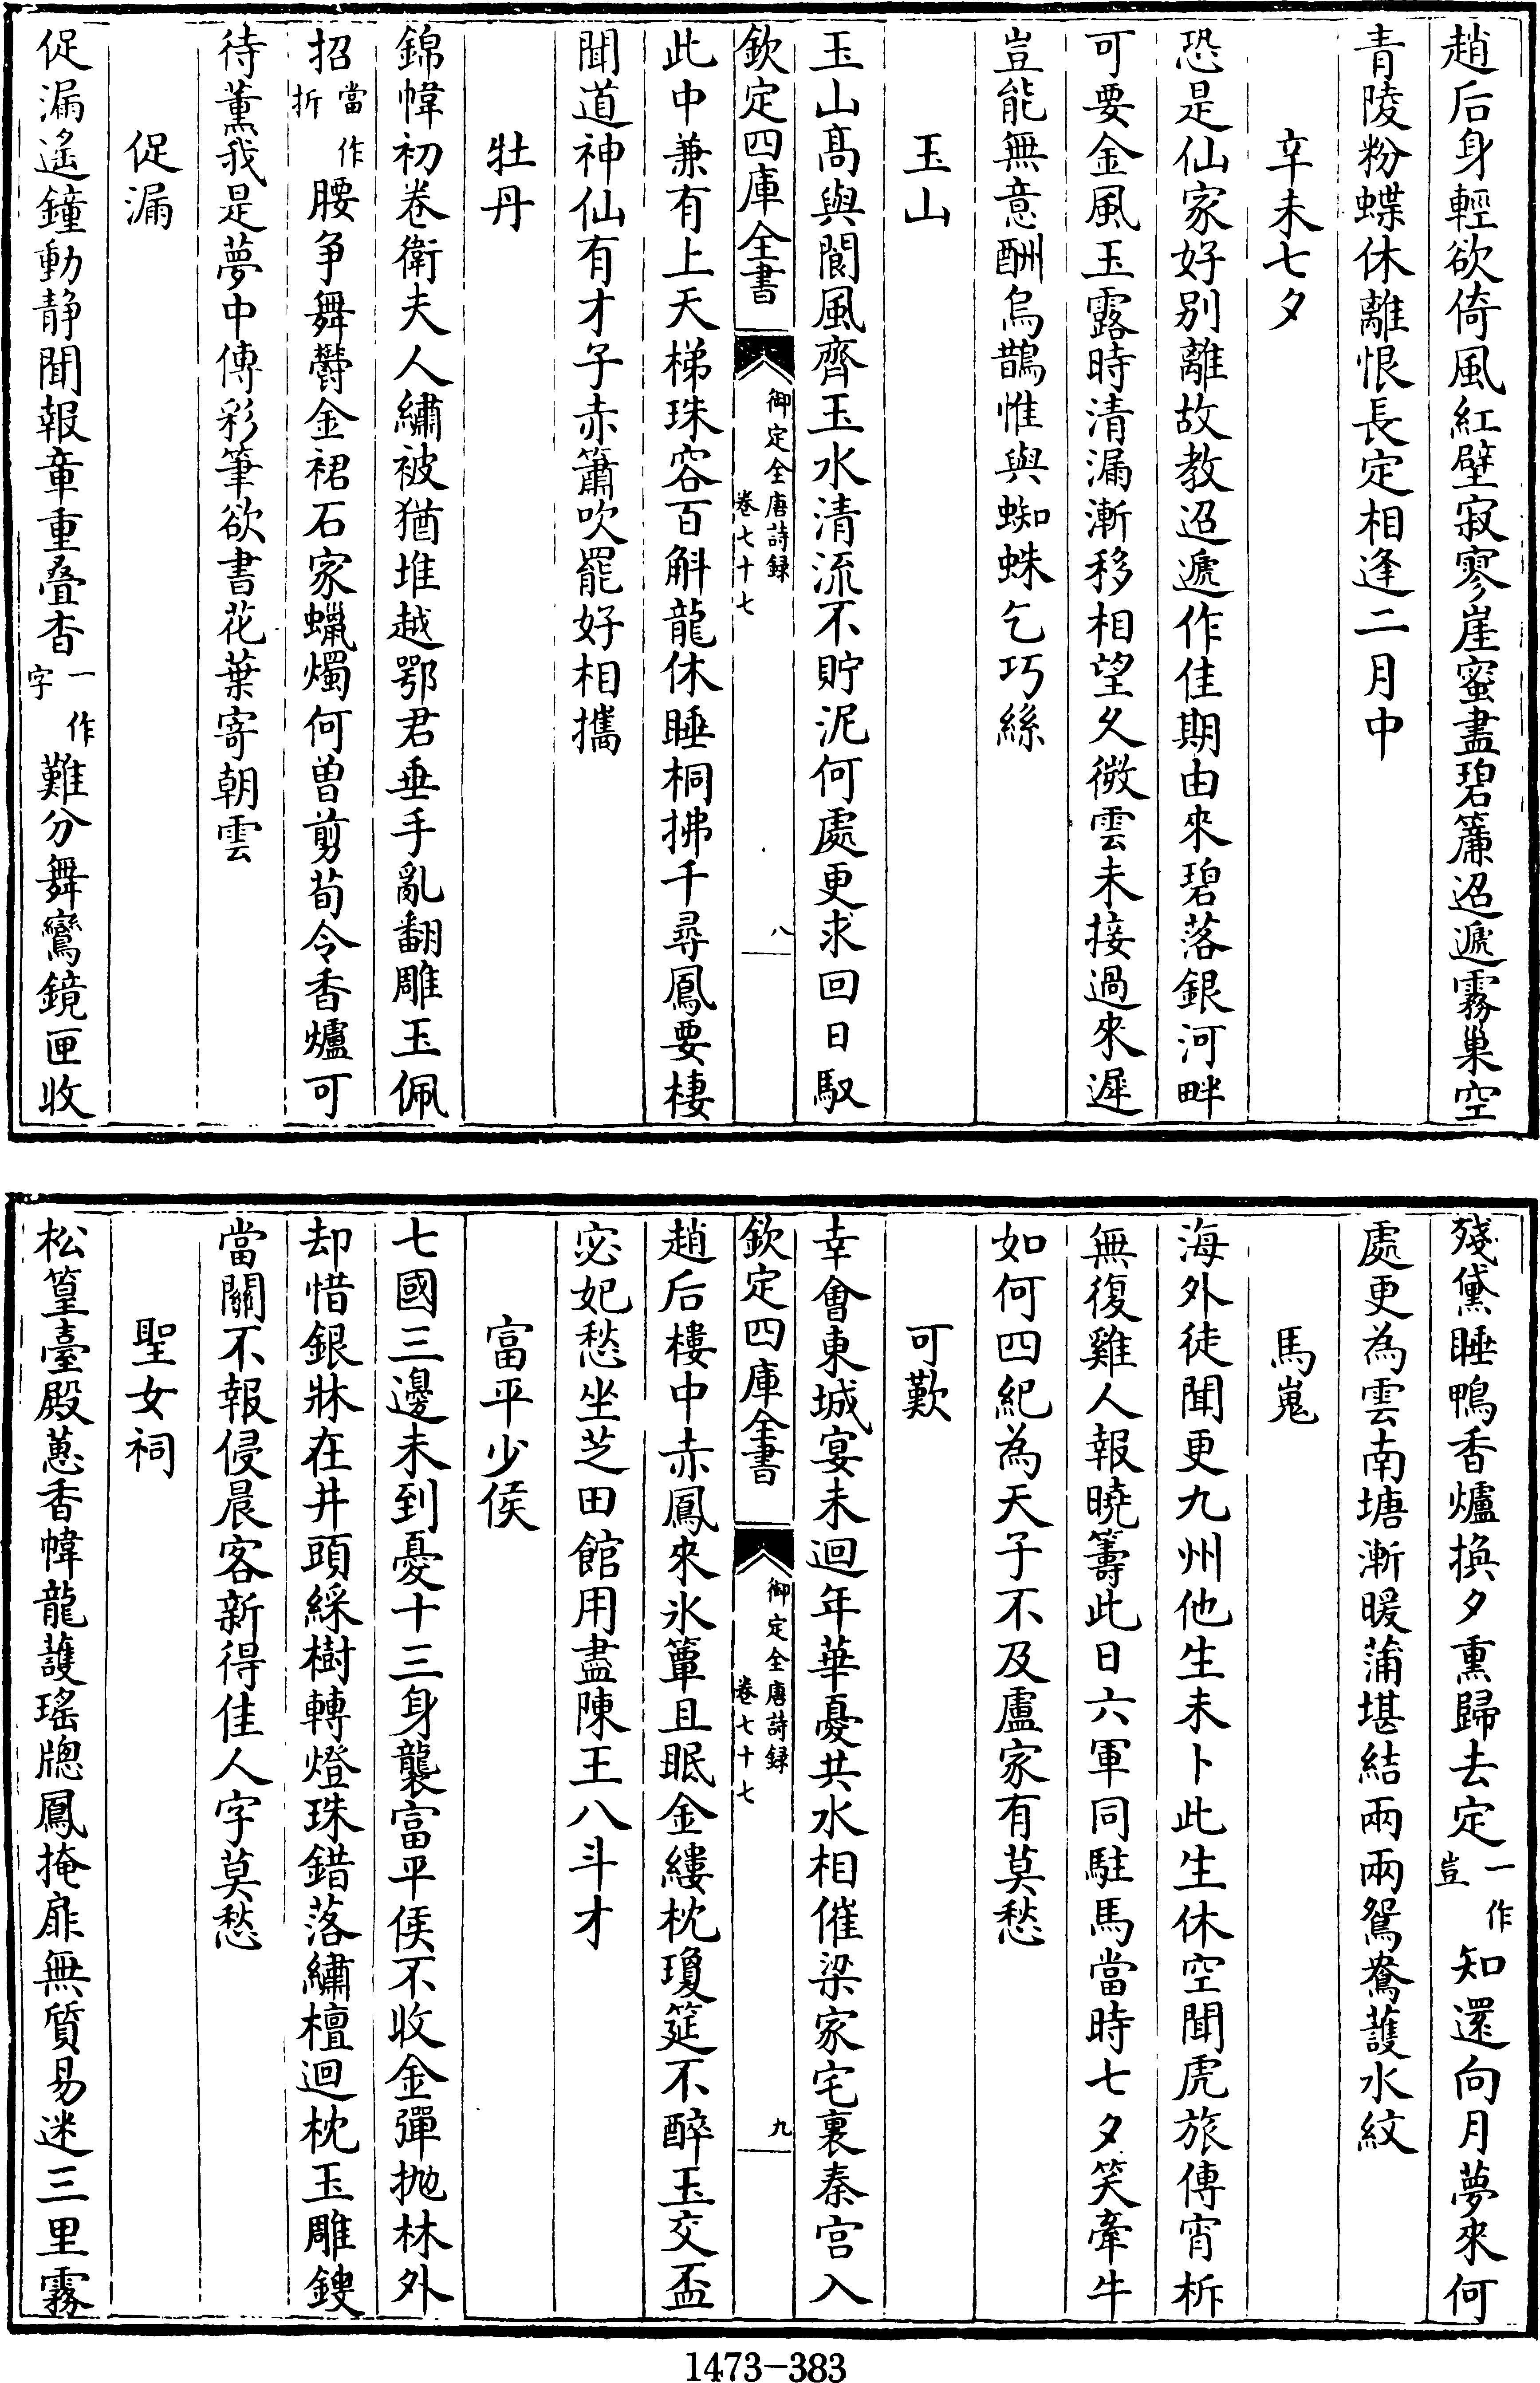 趙后身輕欲倚風紅壁寂寥崖蜜盡碧簾迢遞霧巢空
青陵粉蝶休離恨長定相逢二月中
辛未七夕
恐是仙家好别離故教迢遞作佳期由來碧落銀河畔
可要金風玉露時清漏漸移相望久微雲未接過來遲
豈能無意酬烏鵲惟與蜘蛛乞巧絲
玉山
玉山髙與閬風齊玉水清流不貯泥何處更求回日馭
欽定四庫全書
御定全唐詩録
卷七十七
八
此中兼有上天梯珠容百斛龍休睡桐拂千尋鳳要棲
聞道神仙有才子赤簫吹罷好相攜
牡丹
錦幃初卷衛夫人繡被猶堆越鄂君垂手亂翻雕玉佩
招當作折腰爭舞鬱金裙石家蠟燭何曽剪荀令香爐可
待薰我是夢中傳彩筆欲書花葉寄朝雲
促漏
促漏遙鐘動静聞報章重疊杳一作字難分舞鸞鏡匣收
殘黛睡鴨香爐換夕熏歸去定一作豈知還向月夢來何
處更為雲南塘漸暖蒲堪結兩兩鴛鴦䕶水紋
馬嵬
海外徒聞更九州他生未卜此生休空聞虎旅傳宵柝
無復雞人報曉籌此日六軍同駐馬當時七夕笑牽牛
如何四紀為天子不及盧家有莫愁
可歎
幸會東城宴未迴年華憂共水相催梁家宅裏秦宫入
欽定四庫全書
御定全唐詩録
卷七十七
九
趙后樓中赤鳳來氷簟且眠金縷枕瓊筵不醉玉交盃
宓妃愁坐芝田館用盡陳王八斗才
富平少侯
七國三邊未到憂十三身襲富平侯不收金彈抛林外
却惜銀牀在井頭綵樹轉燈珠錯落繡檀迴枕玉雕鎪
當關不報侵晨客新得佳人字莫愁
聖女祠
松篁臺殿蕙香幃龍䕶瑤牎鳳掩扉無質易迷三里霧
1473-383